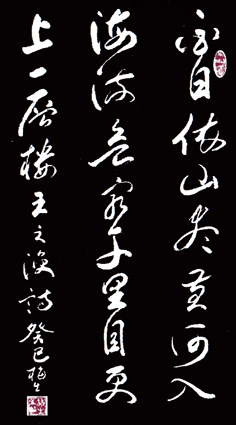 白日依山尽黄河入
海流欲穷千里目更
上一层楼王之涣诗癸巳